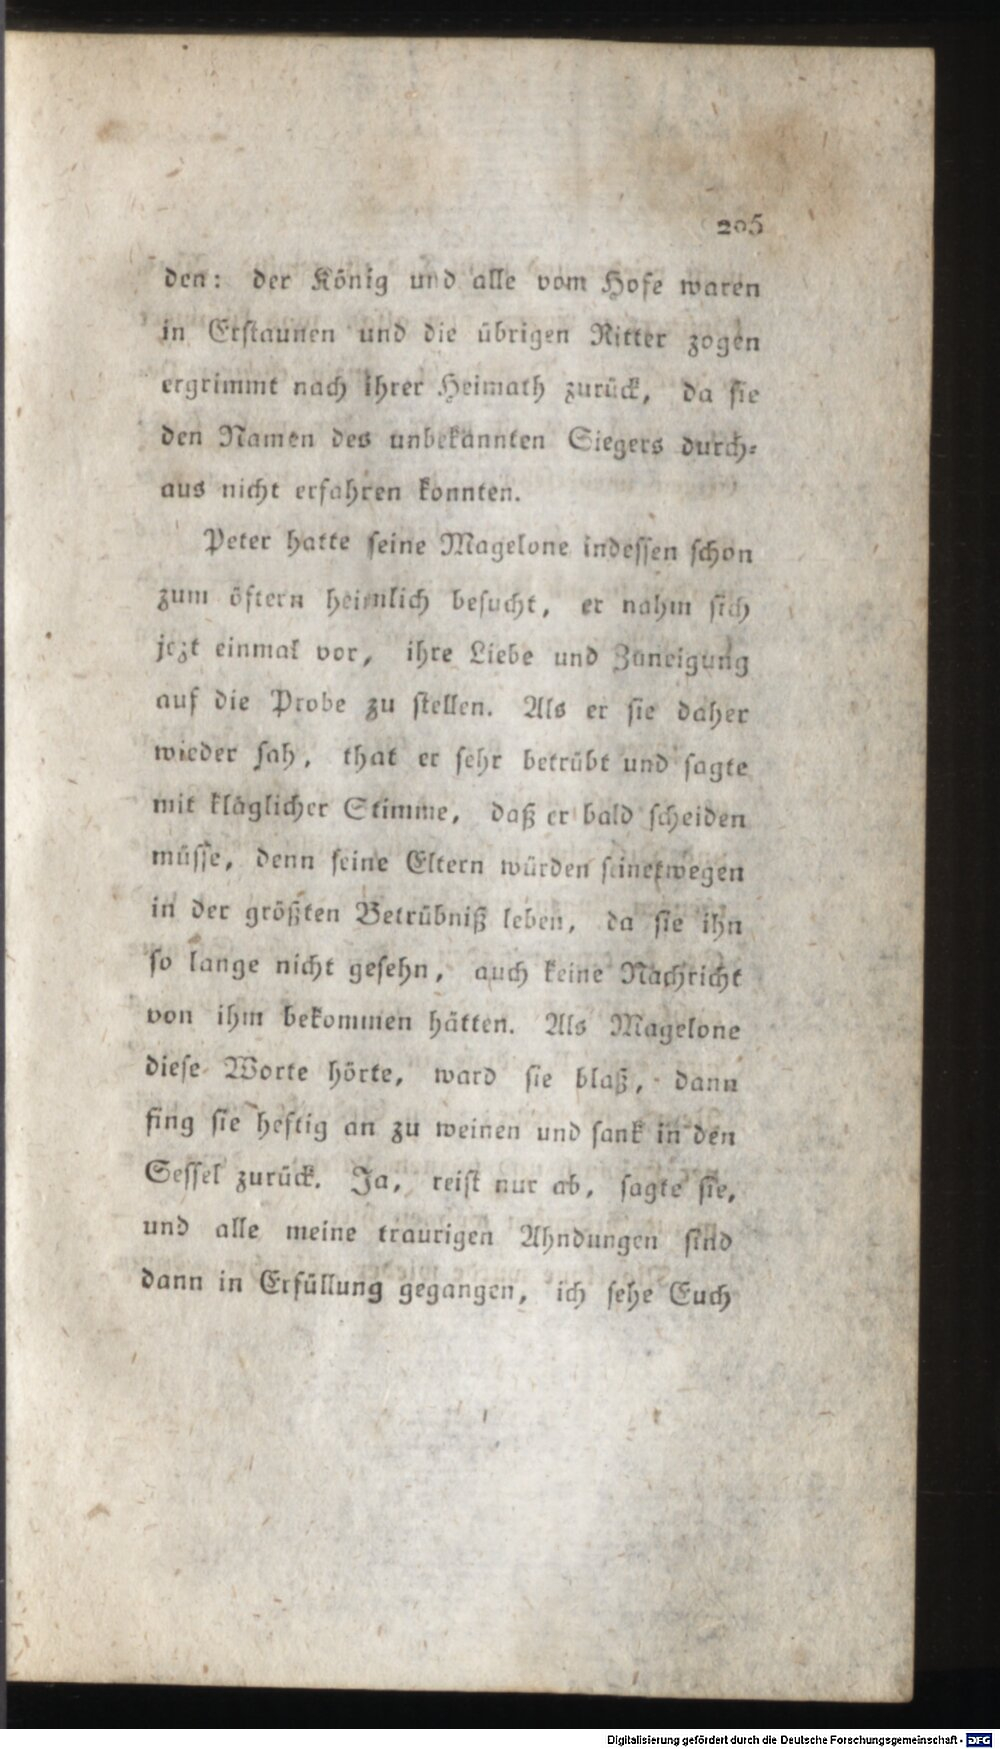 205
den: der König und alle vom Hofe waren
in Erstaunen und die übrigen Ritter zogen
ergrimmt nach ihrer Heimath zurück, da sie
den Namen des unbekannten Siegers durch-
aus nicht erfahren konnten.
Peter hatte seine Magelone indessen schon
zum öftern heimlich besucht, er nahm sich
jezt einmal vor, ihre Liebe und Zuneigung
auf die Probe zu stellen. Als er sie daher
wieder sah, that er sehr betrübt und sagte
mit kläglicher Stimme, daß er bald scheiden
müsse, denn seine Eltern würden seinetwegen
in der größten Betrübniß leben, da sie ihn
so lange nicht gesehn, auch keine Nachricht
von ihm bekommen hätten. Als Magelone
diese Worte hörte, ward sie blaß, dann
fing sie heftig an zu weinen und sank in den
Sessel zurück. Ja, reist nur ab, sagte sie,
und alle meine traurigen Ahndungen sind
dann in Erfüllung gegangen, ich sehe Euch
Digitalisierung gefördert durch die Deutsche Forschungsgemeinschaft - DFG